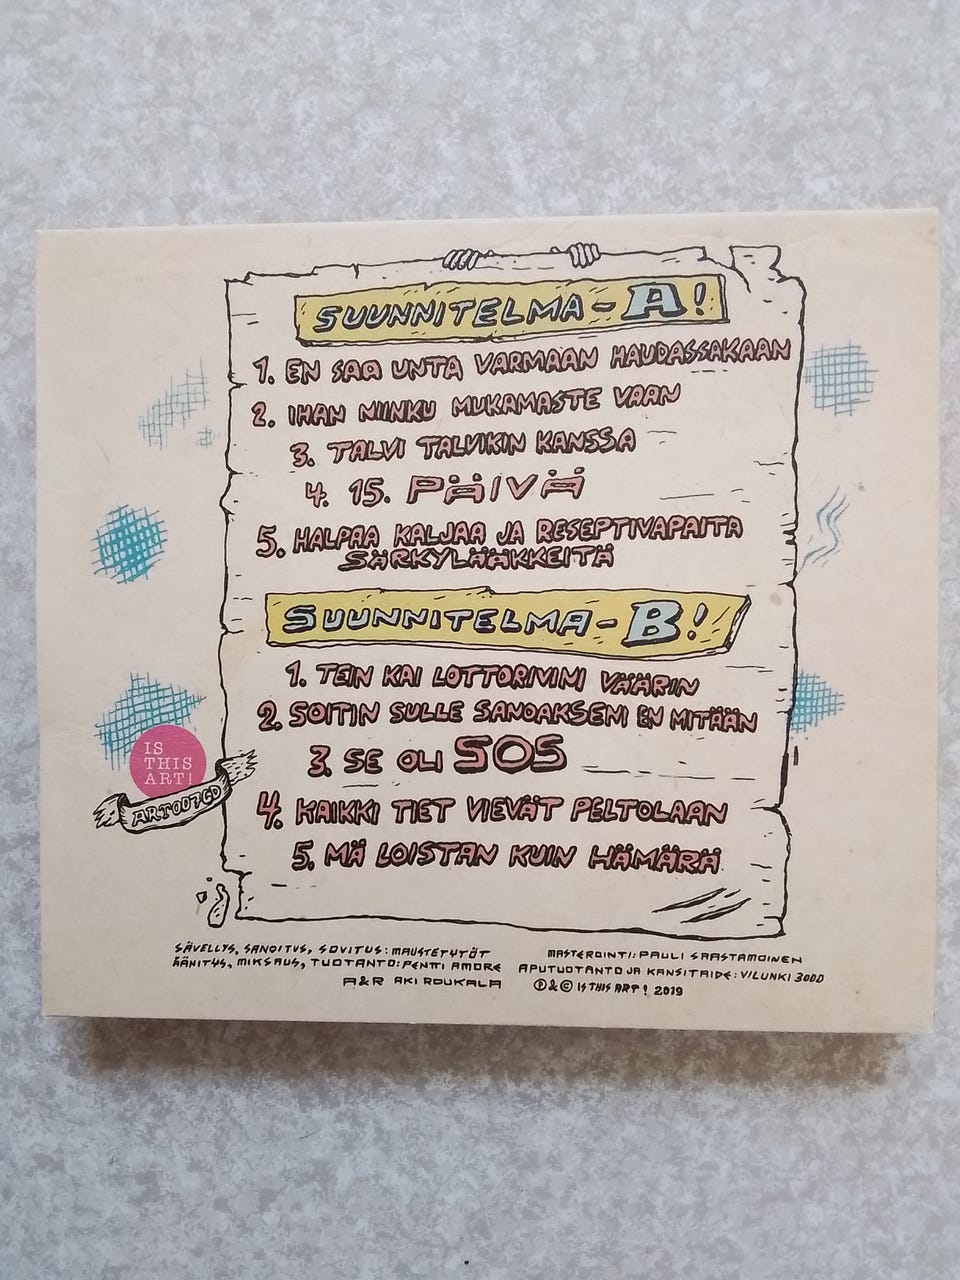 SUUNNITELMA-A!
1. EN SAA UNTA VARMAAN HAUDASSAKAAN
2. IHAN NIINKU MUKAMASTE VAAN
3. TALVI TALVIKIN KANSSA
4. 15. PÄIVÄ
5. HALPAA KALJAA JA RESEPTIVAPAITA
SÄRKYLÄÄKKEITÄ
SUUNNITELMA-B!
1. TEIN KAI LOTTORIVINI VÄÄRIN
2. SOITIN SULLE SANOAKSENI EN MITÄÄN
3. SE OLI SOS
4. KAIKKI TIET VIEVÄT PELTOLAAN
5. MÄ LOISTAN KUIN HÄMÄRÄ
IS
THIS
ART!
ART007CD
SÄVELLYS, SANOITUS, SOVITUS: MAUSTETYTÖT
ÄÄNITYS, MIKSAUS, TUOTANTO: PENTTI AMORE
A&R AKI ROUKALA
MASTEROINTI: PAULI SAASTAMOINEN
APUTUOTANTO JA KANSITAIDE: VILUNKI 3000
℗ & © IS THIS ART! 2019